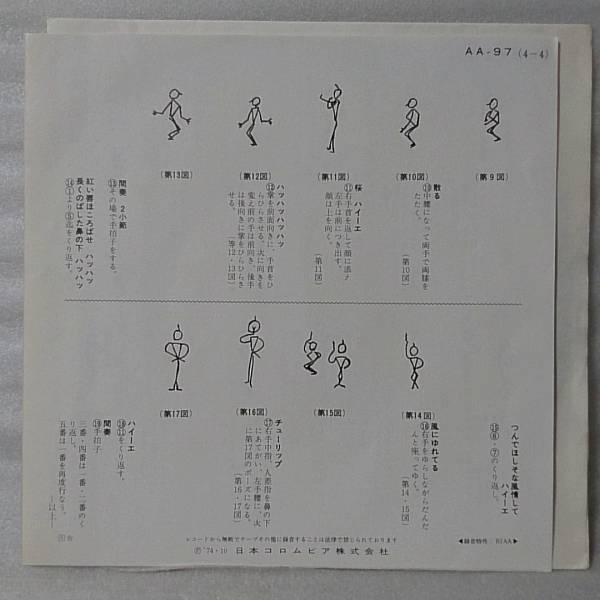 AA-97 (4-4)
(第9図)
(第10図)
(第11図)
(第12図)
(第13図)
散る
⑩中腰になって両手で両膝を
たたく。
(第10図)
桜 ハイーエ
⑪右手首を返して顔に添え
左手は前につき出す。
顔は上を向く。
(第11図)
ハッハッハッハッ
⑫掌を前面向きに、手首をひ
らひらさせる。次に向きを
変え前の手は前向き、後手
は後向きに掌をひらひらさ
せる。
(第12・13図)
間奏 2小節
⑬その場で手拍子をする。
紅い唇ほころばせ ハッハッ
長くのばした鼻の下 ハッハッ
(第14図)
(第15図)
(第16図)
(第17図)
つんでほしそな風情して
ハイーエ
風にゆれてる
⑯右手をゆらしながらだんだ
んと座ってゆく。
(第14・15図)
チューリップ
⑰右手中指、人差指を鼻の下
にあてがい、左手腰に、次
に第17図のポーズになる。
(第16・17図)
ハイーエ
⑱⑪をくり返す。
間奏
⑲手拍子
三番・四番は一番・二番のく
り返し。
五番は一番を再度行なう。
—以上—
レコードから無断でテープその他に録音することは法律で禁じられております
Ⓟ '74・10 日本コロムビア株式会社
◀録音特性：RIAA▶